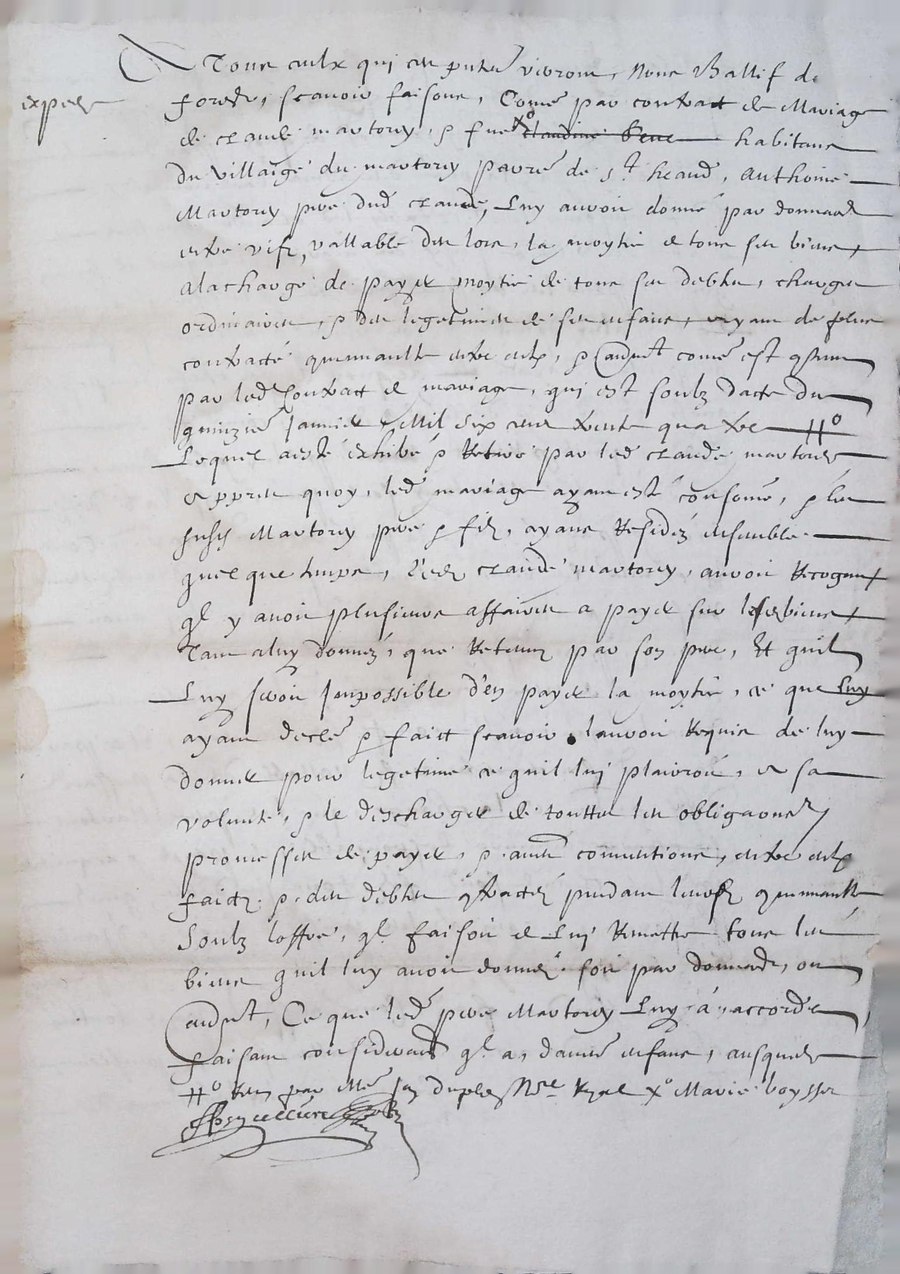 A Tous ceulx qui ces pntes verront, Nous Ballif de
expedie
forestz, scavoir faisons, Come par contract de Mariage
de claude martorey, & fue x° claudine habitans
du villaige du martorey perre de st heand, Anthoine
Martorey pere dud claude, luy auroit donné par donnaon
entre vifz, vallable des lors, la moytié de tous ses biens
A la charge de payer moytié de tous ses debtes, charges
ordinaires, & des legetimes de ses enfans, ayant de plus
contracté quemunaulté entre eulx, & come est
par led Contract de mariage, qui est soulz datte du
quinzie Janvier Mil six cens trente quatre #°
Lequel a esté exhibé & Retiré par led claude martorey
Et apres quoy, led mariage ayant esté consomé, & les
susd Martorey pere & filz, ayans Residez ensemble
quelque temps, led claude martorey, auroit Recogneu
ql y avoit plusieurs affaires a payer sur lesd biens
Tant a luy donnez, que Retenuz par son pere, Et quil
Luy seroit Impossible d'en payer la moytié, ce que Luy
ayant declé & faict scavoir, lauroit Requis de luy
donner pour legetime ce quil lui plairoit, a sa
volunté, & le descharger de touttes les obligaons
promesses de payer, & autres conventions, entre eulx
faictz & des debtes qtractez pendant leurd quemunaulté
Soulz loffre, ql faisoit de Luy Remettre tous les
biens quil luy avoit donnez soit par donnaon, ou
, Ce que led pere Martorey Luy a accordé
faisant consideraon ql a, dautres enfans, ausquelz
#° Receu par Me Jn duplex Nre Ryal x° Marie boysson